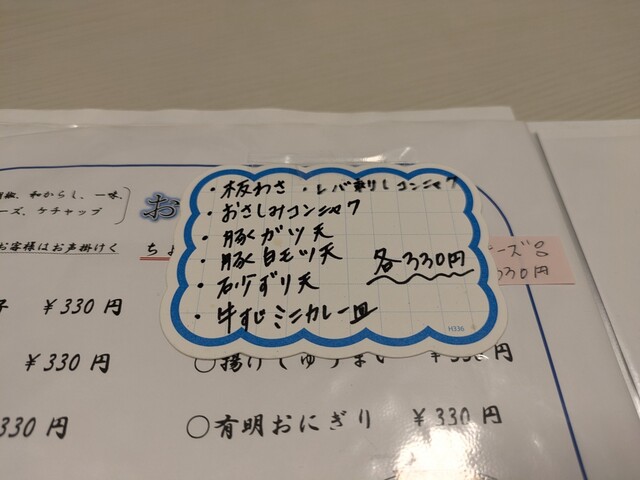 ・板わさ ・レバ刺しコンニャク
・おさしみコンニャク
・豚ガツ天
・豚白モツ天
・砂ずり天
・牛すじミニカレー皿
各330円
H336
和からし、一味、
ーズ、ケチャップ
お
お客様はお声掛けく
ちょ
ーズ
330円
子 ¥330円
¥330円
○揚げしゅうまい ¥330円
330円
○有明おにぎり ¥330円